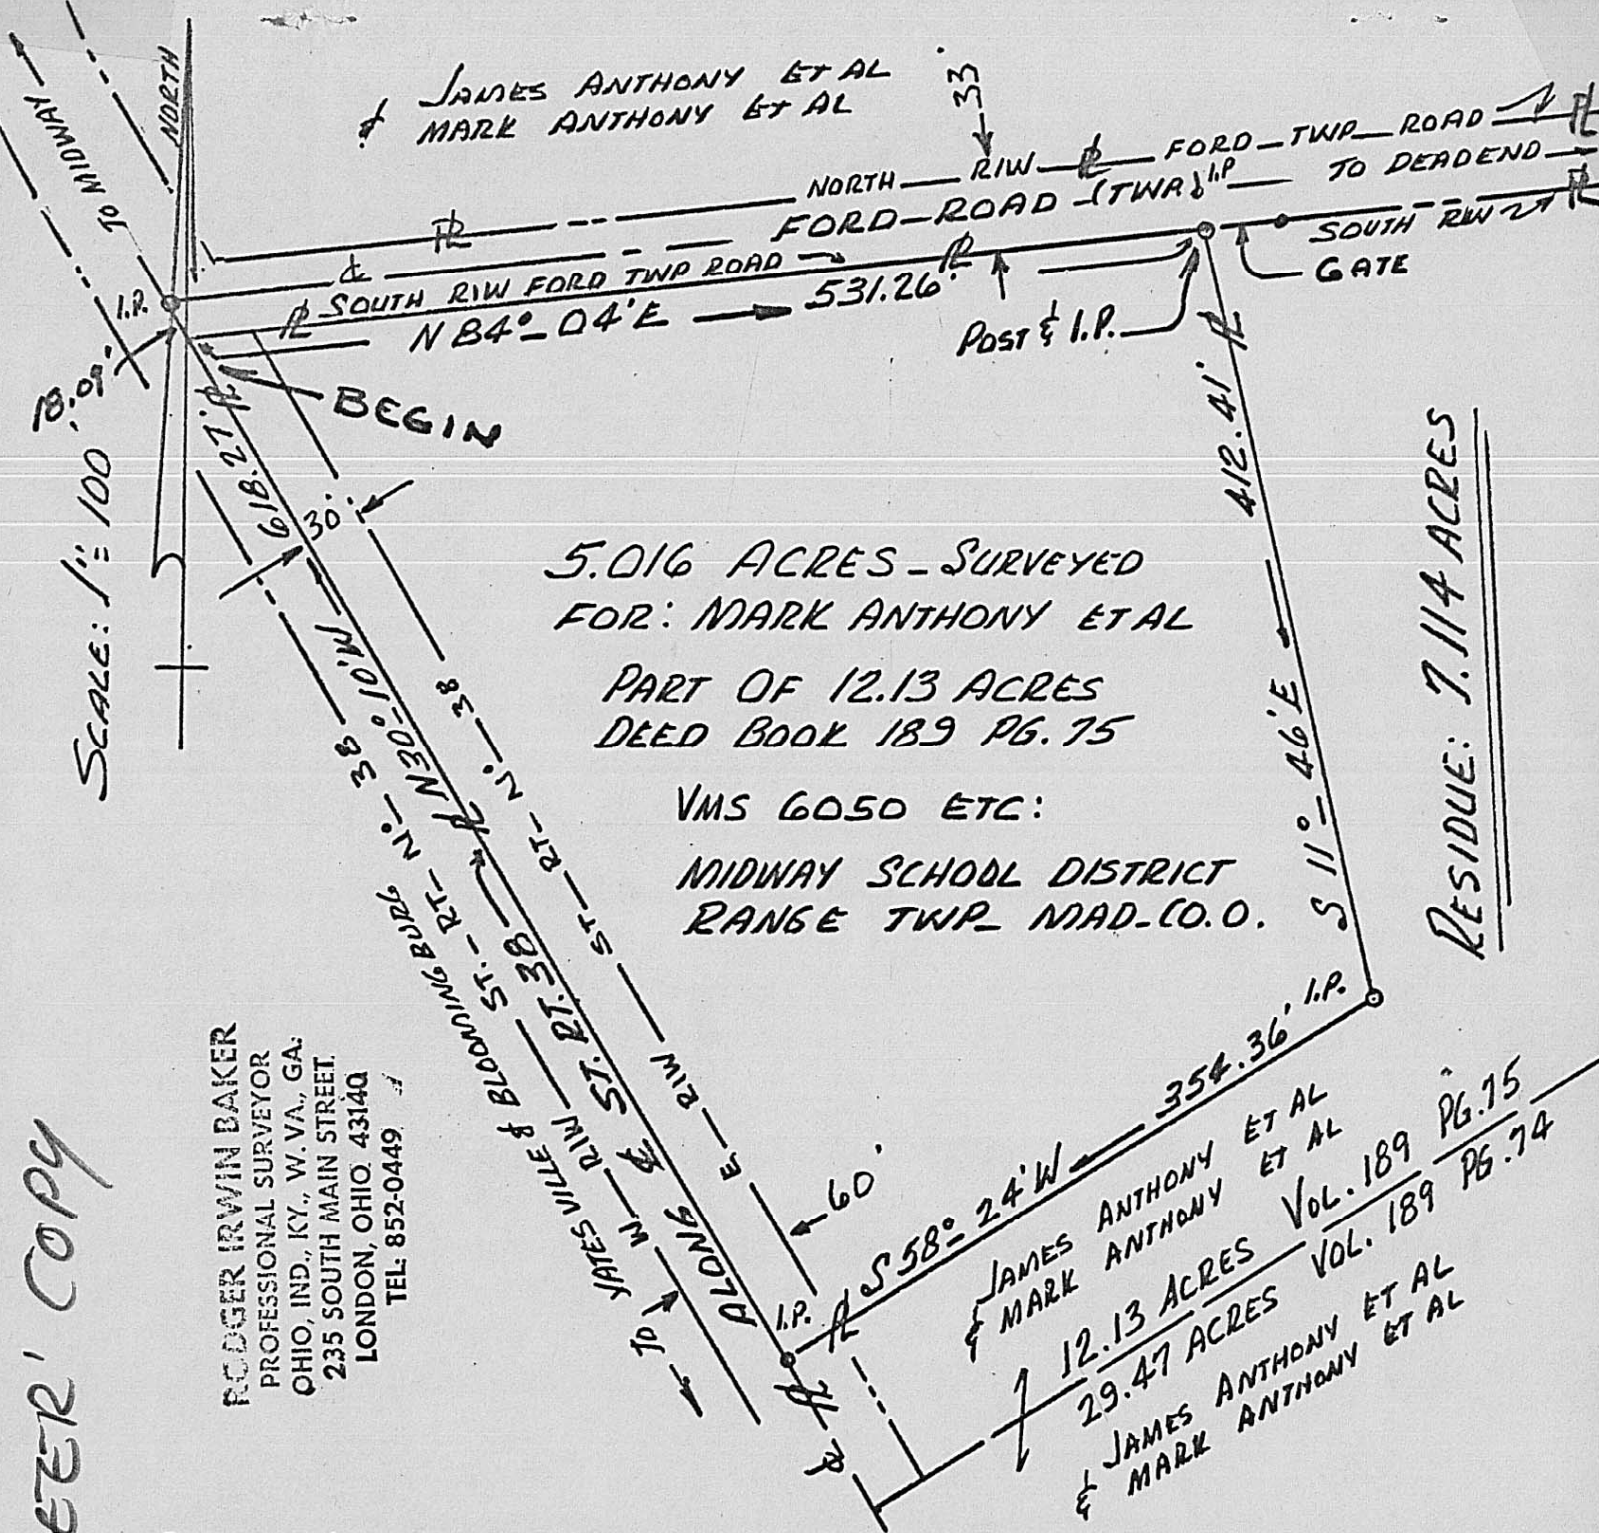 NORTH
TO MIDWAY
JAMES ANTHONY ET AL
& MARK ANTHONY ET AL
33'
NORTH R/W ℄ FORD TWP ROAD ℄
FORD ROAD (TWP) I.P. TO DEADEND
SOUTH R/W
GATE
℄ SOUTH R/W FORD TWP ROAD
N 84°-04'E 531.26'
POST & I.P.
I.P.
18.09'
BEGIN
SCALE: 1"=100'
618.27'
30'
412.41'
S 11°-46'E
RESIDUE: 7.114 ACRES
5.016 ACRES-SURVEYED
FOR: MARK ANTHONY ET AL
PART OF 12.13 ACRES
DEED BOOK 189 PG. 75
VMS 6050 ETC:
MIDWAY SCHOOL DISTRICT
RANGE TWP_ MAD_CO.O.
N30°-10'W
ALONG ℄ ST. RT. 38
W R/W ST.-RT-Nº-38
E R/W ST-RT-Nº-38
TO YATESVILLE & BLOOMINGBURG
60'
I.P.
S 58°-24'W 354.36' I.P.
JAMES ANTHONY ET AL
& MARK ANTHONY ET AL
12.13 ACRES VOL. 189 PG. 75
29.47 ACRES VOL. 189 PG. 74
JAMES ANTHONY ET AL
& MARK ANTHONY ET AL
RODGER IRWIN BAKER
PROFESSIONAL SURVEYOR
OHIO, IND., KY., W. VA., GA.
235 SOUTH MAIN STREET
LONDON, OHIO 43140
TEL: 852-0449
COPY